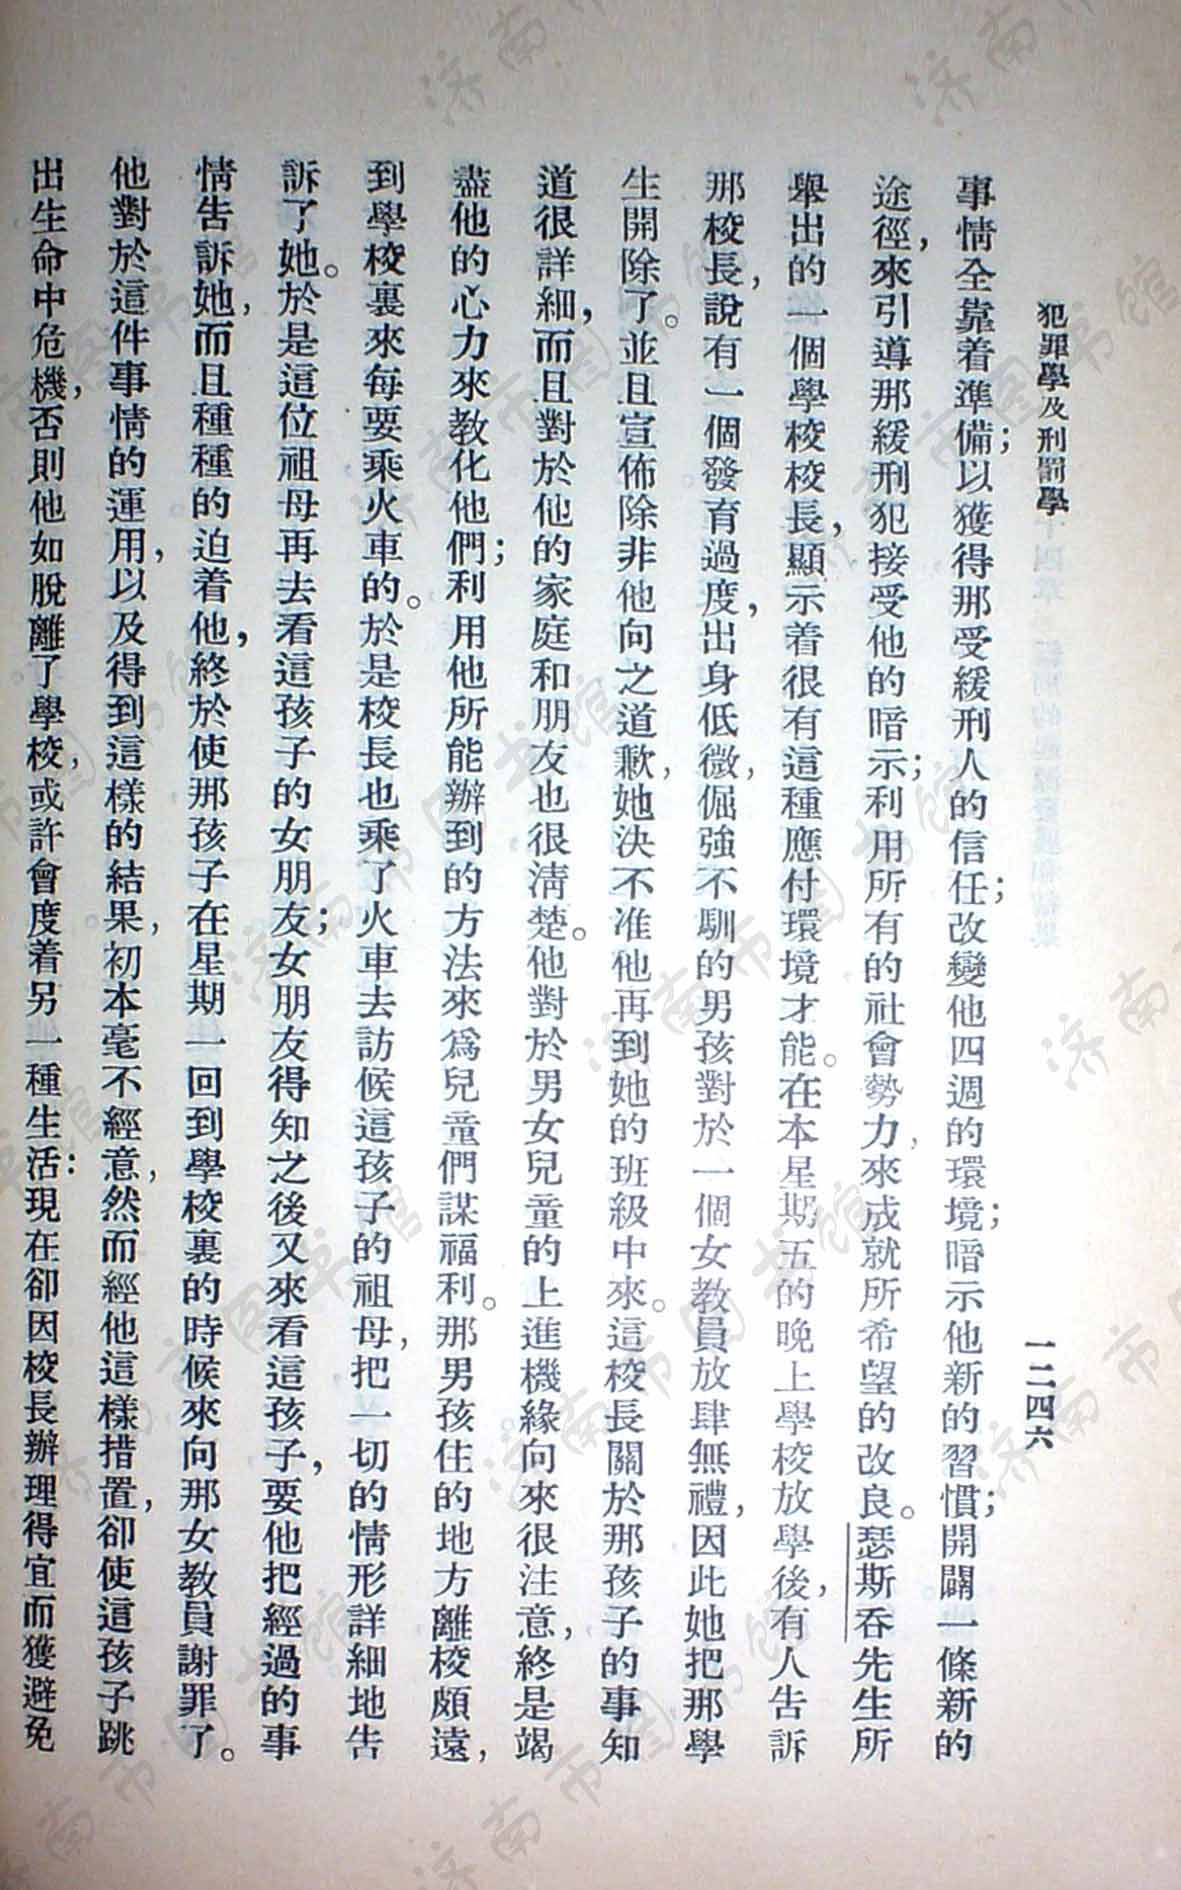 犯罪學及刑罰學
一二四六
事情全靠着準備；以獲得那受緩刑人的信任；改變他四週的環境；暗示他新的習慣；開闢一條新的
途徑，來引導那緩刑犯接受他的暗示；利用所有的社會勢力，來成就所希望的改良。瑟斯吞先生所
舉出的一個學校校長，顯示着很有這種應付環境才能。在本星期五的晚上學校放學後，有人告訴
那校長，說有一個發育過度，出身低微，倔強不馴的男孩對於一個女教員放肆無禮，因此她把那學
生開除了。並且宣佈除非他向之道歉，她决不准他再到她的班級中來。這校長關於那孩子的事知
道很詳細，而且對於他的家庭和朋友也很淸楚。他對於男女兒童的上進機緣向來很注意，終是竭
盡他的心力來教化他們；利用他所能辦到的方法來爲兒童們謀福利。那男孩住的地方離校頗遠，
到學校裏來每要乘火車的。於是校長也乘了火車去訪候這孩子的祖母，把一切的情形詳細地告
訴了她。於是這位祖母再去看這孩子的女朋友；女朋友得知之後又來看這孩子，要他把經過的事
情告訴她，而且種種的迫着他，終於使那孩子在星期一回到學校裏的時候來向那女教員謝罪了。
他對於這件事情的運用，以及得到這樣的結果，初本毫不經意，然而經他這樣措置，卻使這孩子跳
出生命中危機，否則他如脫離了學校，或許會度着另一種生活：現在卻因校長辦理得宜而獲避免
济南市图书馆